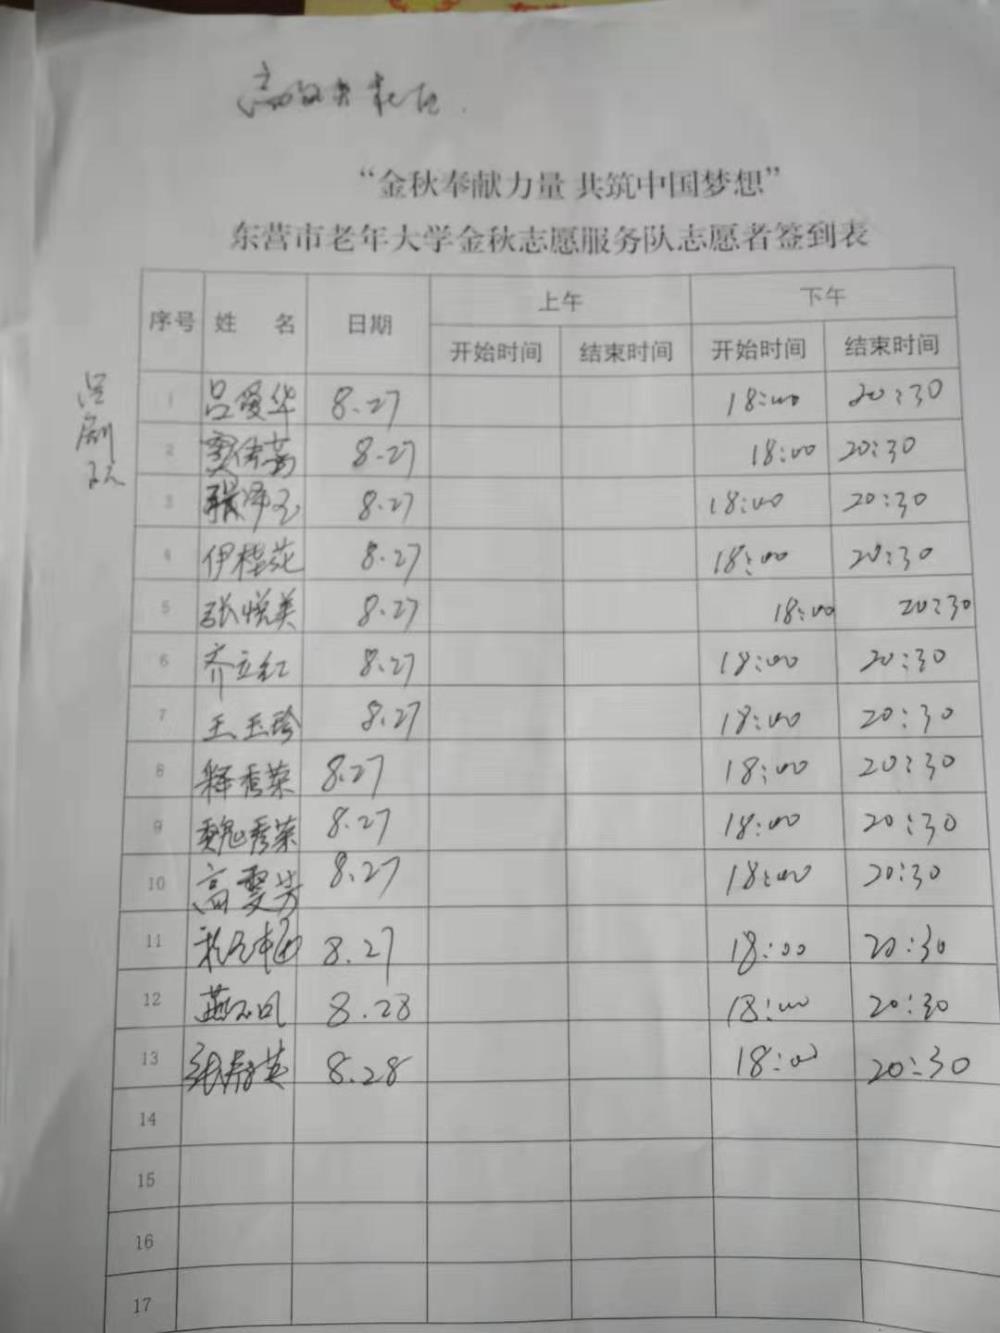 “金秋奉献力量 共筑中国梦想”
东营市老年大学金秋志愿服务队志愿者签到表
序号 姓 名 日期 上午 下午
开始时间 结束时间 开始时间 结束时间
吕剧队
1 吕爱华 8.27 18:00 20:30
2 8.27 18:00 20:30
3 张 玉 8.27 18:00 20:30
4 伊桂花 8.27 18:00 20:30
5 张悦美 8.27 18:00 20:30
6 齐立红 8.27 18:00 20:30
7 王玉珍 8.27 18:00 20:30
8 释秀荣 8.27 18:00 20:30
9 魏秀荣 8.27 18:00 20:30
10 高雯芳 8.27 18:00 20:30
11 8.27 18:00 20:30
12 燕 风 8.28 18:00 20:30
13 张 英 8.28 18:00 20:30
14
15
16
17